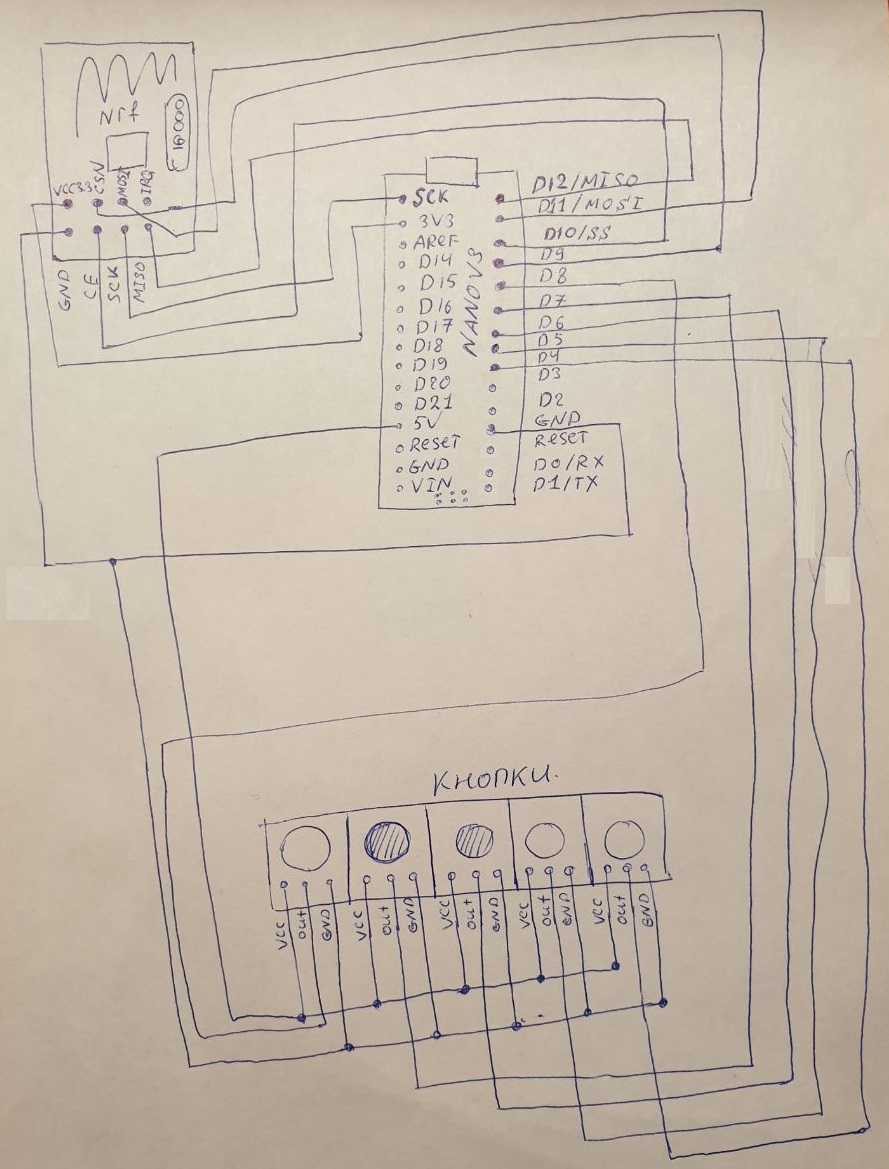 Nrf
16000
VCC33
CSN
MOSI
IRQ
GND
CE
SCK
MISO
NANO V3
SCK
3V3
AREF
D14
D15
D16
D17
D18
D19
D20
D21
5V
RESET
GND
VIN
D12/MISO
D11/MOSI
D10/SS
D9
D8
D7
D6
D5
D4
D3
D2
GND
RESET
D0/RX
D1/TX
КНОПКИ.
VCC out GND VCC out GND VCC out GND VCC out GND VCC out GND